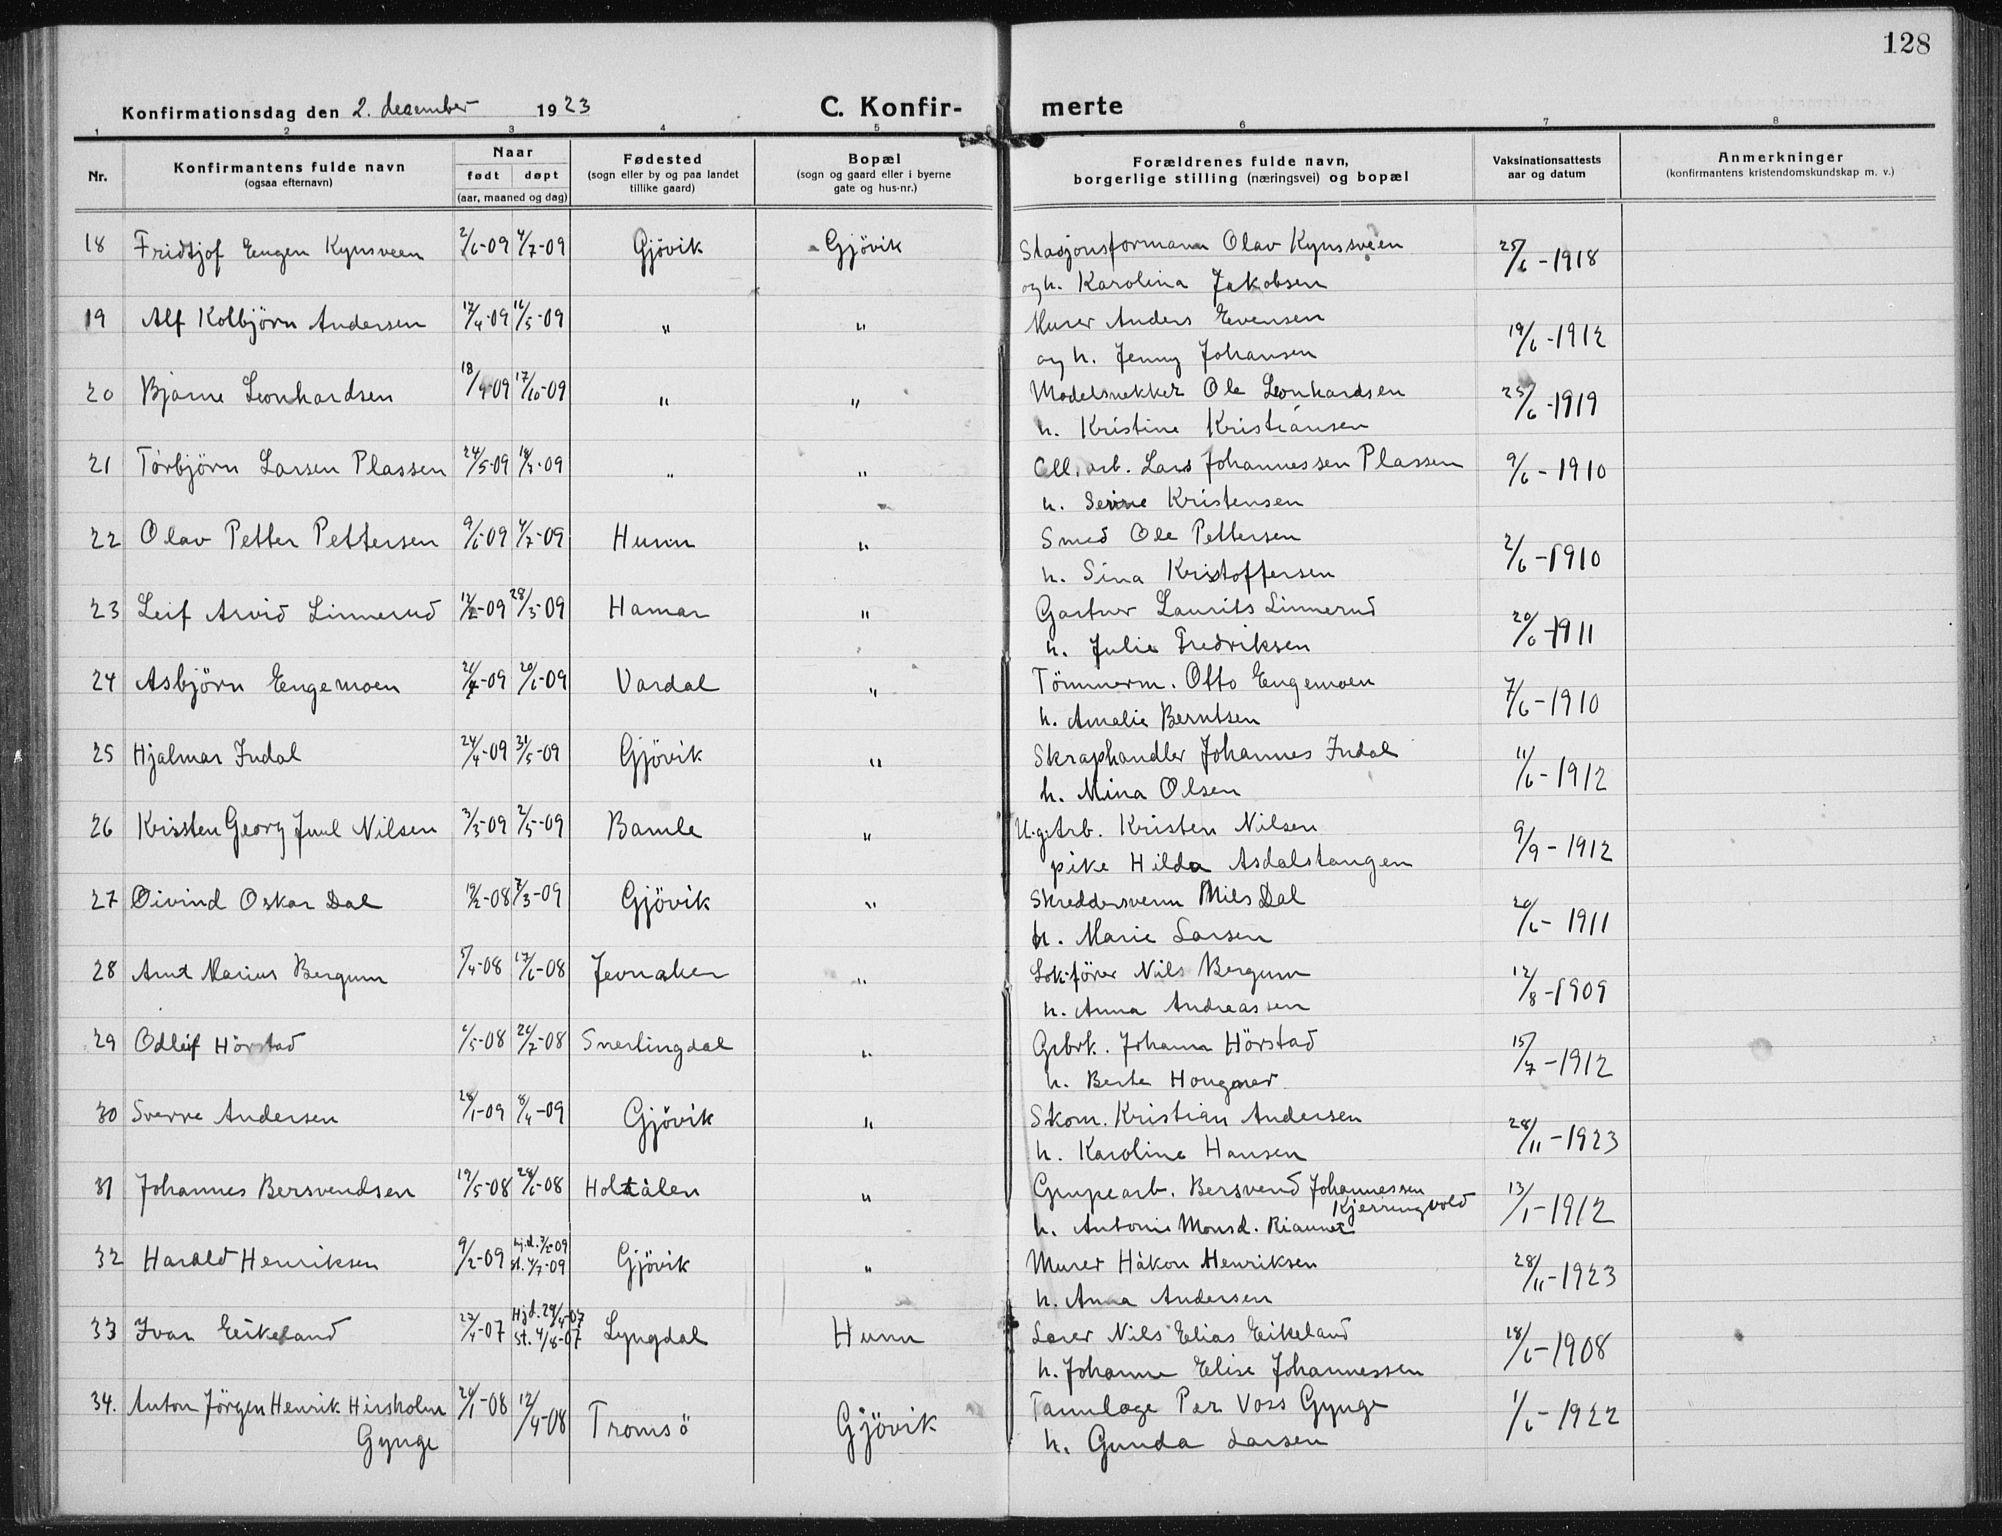 128
Konfirmationsdag den 2. desember 1923 C. Konfir- merte
1 2 3 4 5 6 7 8
Nr. Konfirmantens fulde navn (ogsaa efternavn) Naar født døpt (aar, maaned og dag) Fødested (sogn eller by og paa landet tillike gaard) Bopæl (sogn og gaard eller i byerne gate og hus-nr.) Forældrenes fulde navn, borgerlige stilling (næringsvei) og bopæl Vaksinationsattests aar og datum Anmerkninger (konfirmantens kristendomskundskap m. v.)
18 Fridtjof Eugen Kynsveen 2/6-09 4/7-09 Gjövik Gjövik Stasjonsformann Olav Kynsveen 25/6-1918
og h. Karolina Jakobsen
19 Alf Kolbjörn Andersen 17/4-09 16/5-09 " " Murer Anders Evensen 19/6-1912
og h. Jenny Johansen
20 Bjarne Leonhardsen 18/9-09 17/10-09 " " Modelsnekker Ole Leonhardsen 25/6-1919
h. Kristine Kristiansen
21 Torbjörn Larsen Plassen 24/5-09 -09 " " Cell. arb. Lars Johannessen Plassen 9/6-1910
h. Serine Kristensen
22 Olav Petter Pettersen 9/6-09 4/7-09 Hunn " Smed Ole Pettersen 2/6-1910
h. Sina Kristoffersen
23 Leif Arvid Linnerud 12/2-09 28/3-09 Hamar " Gartner Laurits Linnerud 20/6-1911
h. Julie Fredriksen
24 Asbjörn Engemoen -09 20/6-09 Vardal " Tömmerm. Otto Engemoen 7/6-1910
h. Amalie Berntsen
25 Hjalmar Indal 24/4-09 31/5-09 Gjövik " Skraphandler Johannes Indal 11/6-1912
h. Mina Olsen
26 Kristen Georg Juul Nilsen 3/3-09 2/5-09 Bamle " U.g. Arb. Kristen Nilsen 9/9-1912
pike Hilda Asdalstangen
27 Øivind Oskar Dal 19/2-08 7/3-09 Gjövik " Skreddersvenn Nils Dal 20/6-1911
h. Marie Larsen
28 Arnt Marius Bergum 5/4-08 17/6-08 Jevnaker " Lok.förer Nils Bergum 12/8-1909
h. Anna Andreassen
29 Odleif Hörstad 6/5-08 26/7-08 Snertingdal " Gebrk. Johann Hörstad 15/7-1912
h. Berte Hougner
30 Sverre Andersen 28/1-09 8/4-09 Gjövik " Skom. Kristian Andersen 28/11-1923
h. Karoline Hansen
31 Johannes Bersvendsen 19/5-08 28/6-08 Holtålen " Grupearb. Bersvend Johannessen 13/1-1912
Kjerringvold
h. Antonie Monsd. Riaunet
32 Harald Henriksen 9/2-09 hj.d. 3/2-09 Gjövik " Murer Håkon Henriksen 28/11-1923
st. 4/7-09
h. Anna Andersen
33 Ivar Eikeland 22/4-07 Hjd. 24/4-07 Lyngdal Hunn Lærer Nils Elias Eikeland 18/6-1908
st. 4/8-07
h. Johanne Elise Johannessen
34. Anton Jörgen Henrik Hersholm 20/1-08 12/4-08 Tromsö Gjövik Tannlæge Per Voss Gynge 1/6-1922
Gynge h. Gunda Larsen